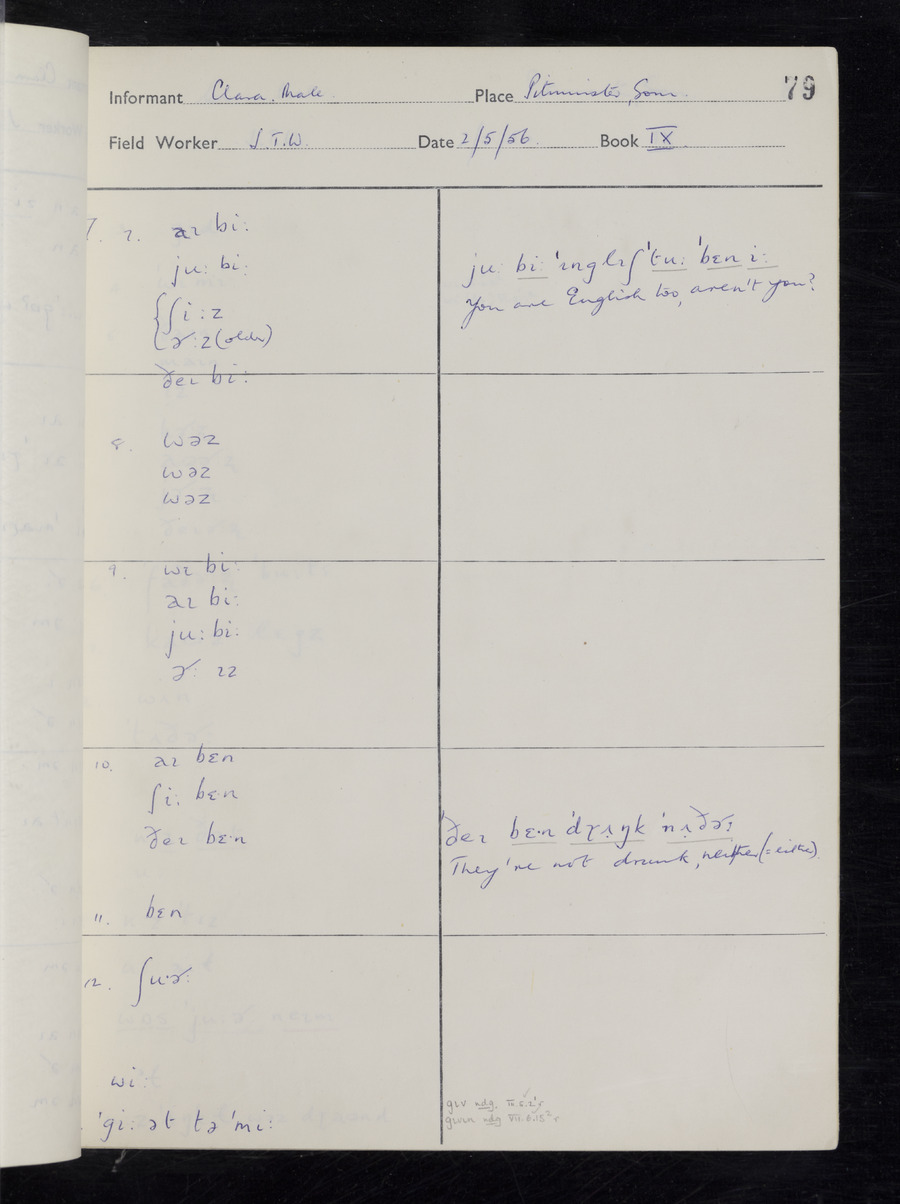 79
Informant Clara Male Place Pitminster, Som.
Field Worker J.T.W. Date 2/5/56 Book IX
7. 2. aɪ bi:
ju: bi:
ʃi:z
ɚ:z (older)
ðeɪ bi:
ju: bi: 'ɪnglɪʃ 'tu: 'bɛn i:
You are English too, aren't you?
8. wəz
wəz
wəz
9. wɪ bi:
aɪ bi:
ju: bi:
ɚ: ɪz
10. aɪ bɛn
ʃi: bɛ·n
ðeɪ bɛ·n
ðeɪ bɛ·n
They're not drunk, neither (= either).
11. bɛn
12. ʃu·ɚ:
wi:
'gi: ət tə 'mi: